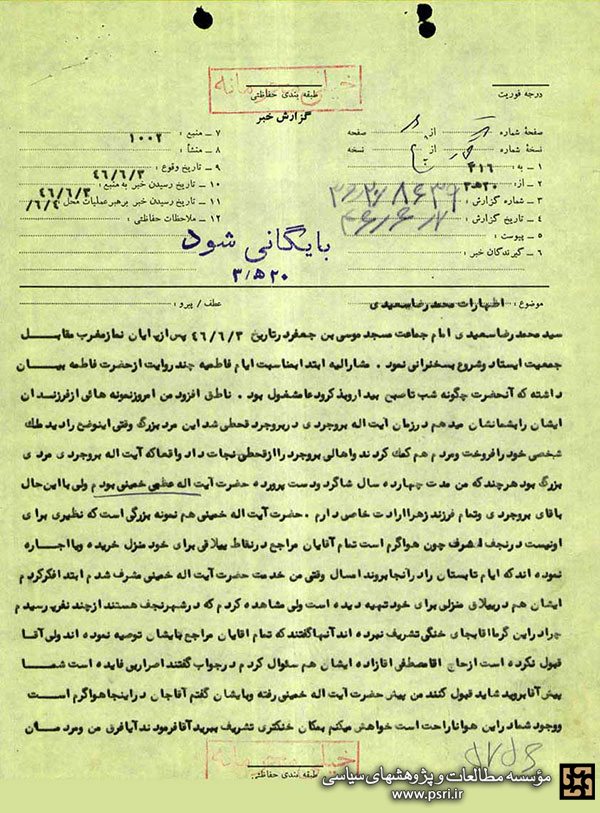 خیلی محرمانه
درجه فوریت
طبقه بندی حفاظتی
گزارش خبر
صفحهٔ شماره از صفحه
نسخهٔ شماره از نسخه
۱ ـ به : ۳۱۶
۲ ـ از: ۲۰ھ۳
۳ ـ شماره گزارش :
۴ ـ تاریخ گزارش :
۵ ـ پیوست :
۶ ـ گیرندگان خبر :
۷ ـ منبع : ۱۰۰۲
۸ ـ منشأ :
۹ ـ تاریخ وقوع : ۴۶/۶/۳
۱۰ ـ تاریخ رسیدن خبر به منبع : ۴۶/۶/۳
۱۱ ـ تاریخ رسیدن خبر برهبر عملیات محل
۱۲ ـ ملاحظات حفاظتی :
بایگانی شود
۲۰ھ۳
موضوع : اظهارات محمد رضا سعیدی
عطف / پیرو :
سید محمد رضا سعیدی امام جماعت مسجد موسی بن جعفر در تاریخ ۴۶/۶/۳ پس از پایان نماز مغرب مقابل
جمعیت ایستاد و شروع بسخنرانی نمود . مشارالیه ابتدا بمناسبت ایام فاطمیه چند روایت از حضرت فاطمه بیان
داشته که آنحضرت چگونه شب تا صبح بیدار و بذکر و دعا مشغول بود . ناطق افزود من امروز نمونه هائی از فرزندان
ایشان را بشما نشان میدهم در زمان آیت اله بروجردی در بروجرد قحطی شد این مرد بزرگ وقتی اینوضع را دید ملک
شخصی خود را فروخت و مردم هم کمک کردند و اهالی بروجرد را از قحطی نجات داد واقعا که آیت اله بروجردی مردی
بزرگ بود هر چند که من مدت چهارده سال شاگرد و دست پرورده حضرت آیت اله عظمی خمینی بودم ولی با این حال
باقای بروجردی و تمام فرزند زهرا ارادت خاصی دارم . حضرت آیت اله خمینی هم نمونه بزرگی است که نظیری برای
او نیست در نجف اشرف چون هوا گرم است تمام آقایان مراجع در نقاط ییلاقی برای خود منزل خریده و یا اجاره
نموده اند که ایام تابستان را در آنجا بروند امسال وقتی من خدمت حضرت آیت اله خمینی مشرف شدم ابتدا فکر کردم
ایشان هم در ییلاق منزلی برای خود تهیه دیده است ولی مشاهده کردم که در شهر نجف هستند از چند نفر پرسیدم
چرا در این گرما اقا بجای خنکی تشریف نبرده اند آنها گفتند که تمام اقایان مراجع بایشان توصیه نموده اند ولی آقا
قبول نکرده است از حاج اقا مصطفی اقازاده ایشان هم سئوال کردم در جواب گفتند اصرار بی فایده است شما
پیش آقا بروید شاید قبول کنند من پیش حضرت آیت اله خمینی رفته و بایشان گفتم آقا جان در اینجا هوا گرم است
و وجود شما در این هوا ناراحت است خواهش میکنم بمکان خنکتری تشریف ببرید آقا فرمودند آیا فرق من و مردمان
خیلی محرمانه
طبقه بندی حفاظتی
مؤسسه مطالعات و پژوهشهای سیاسی
www.psri.ir